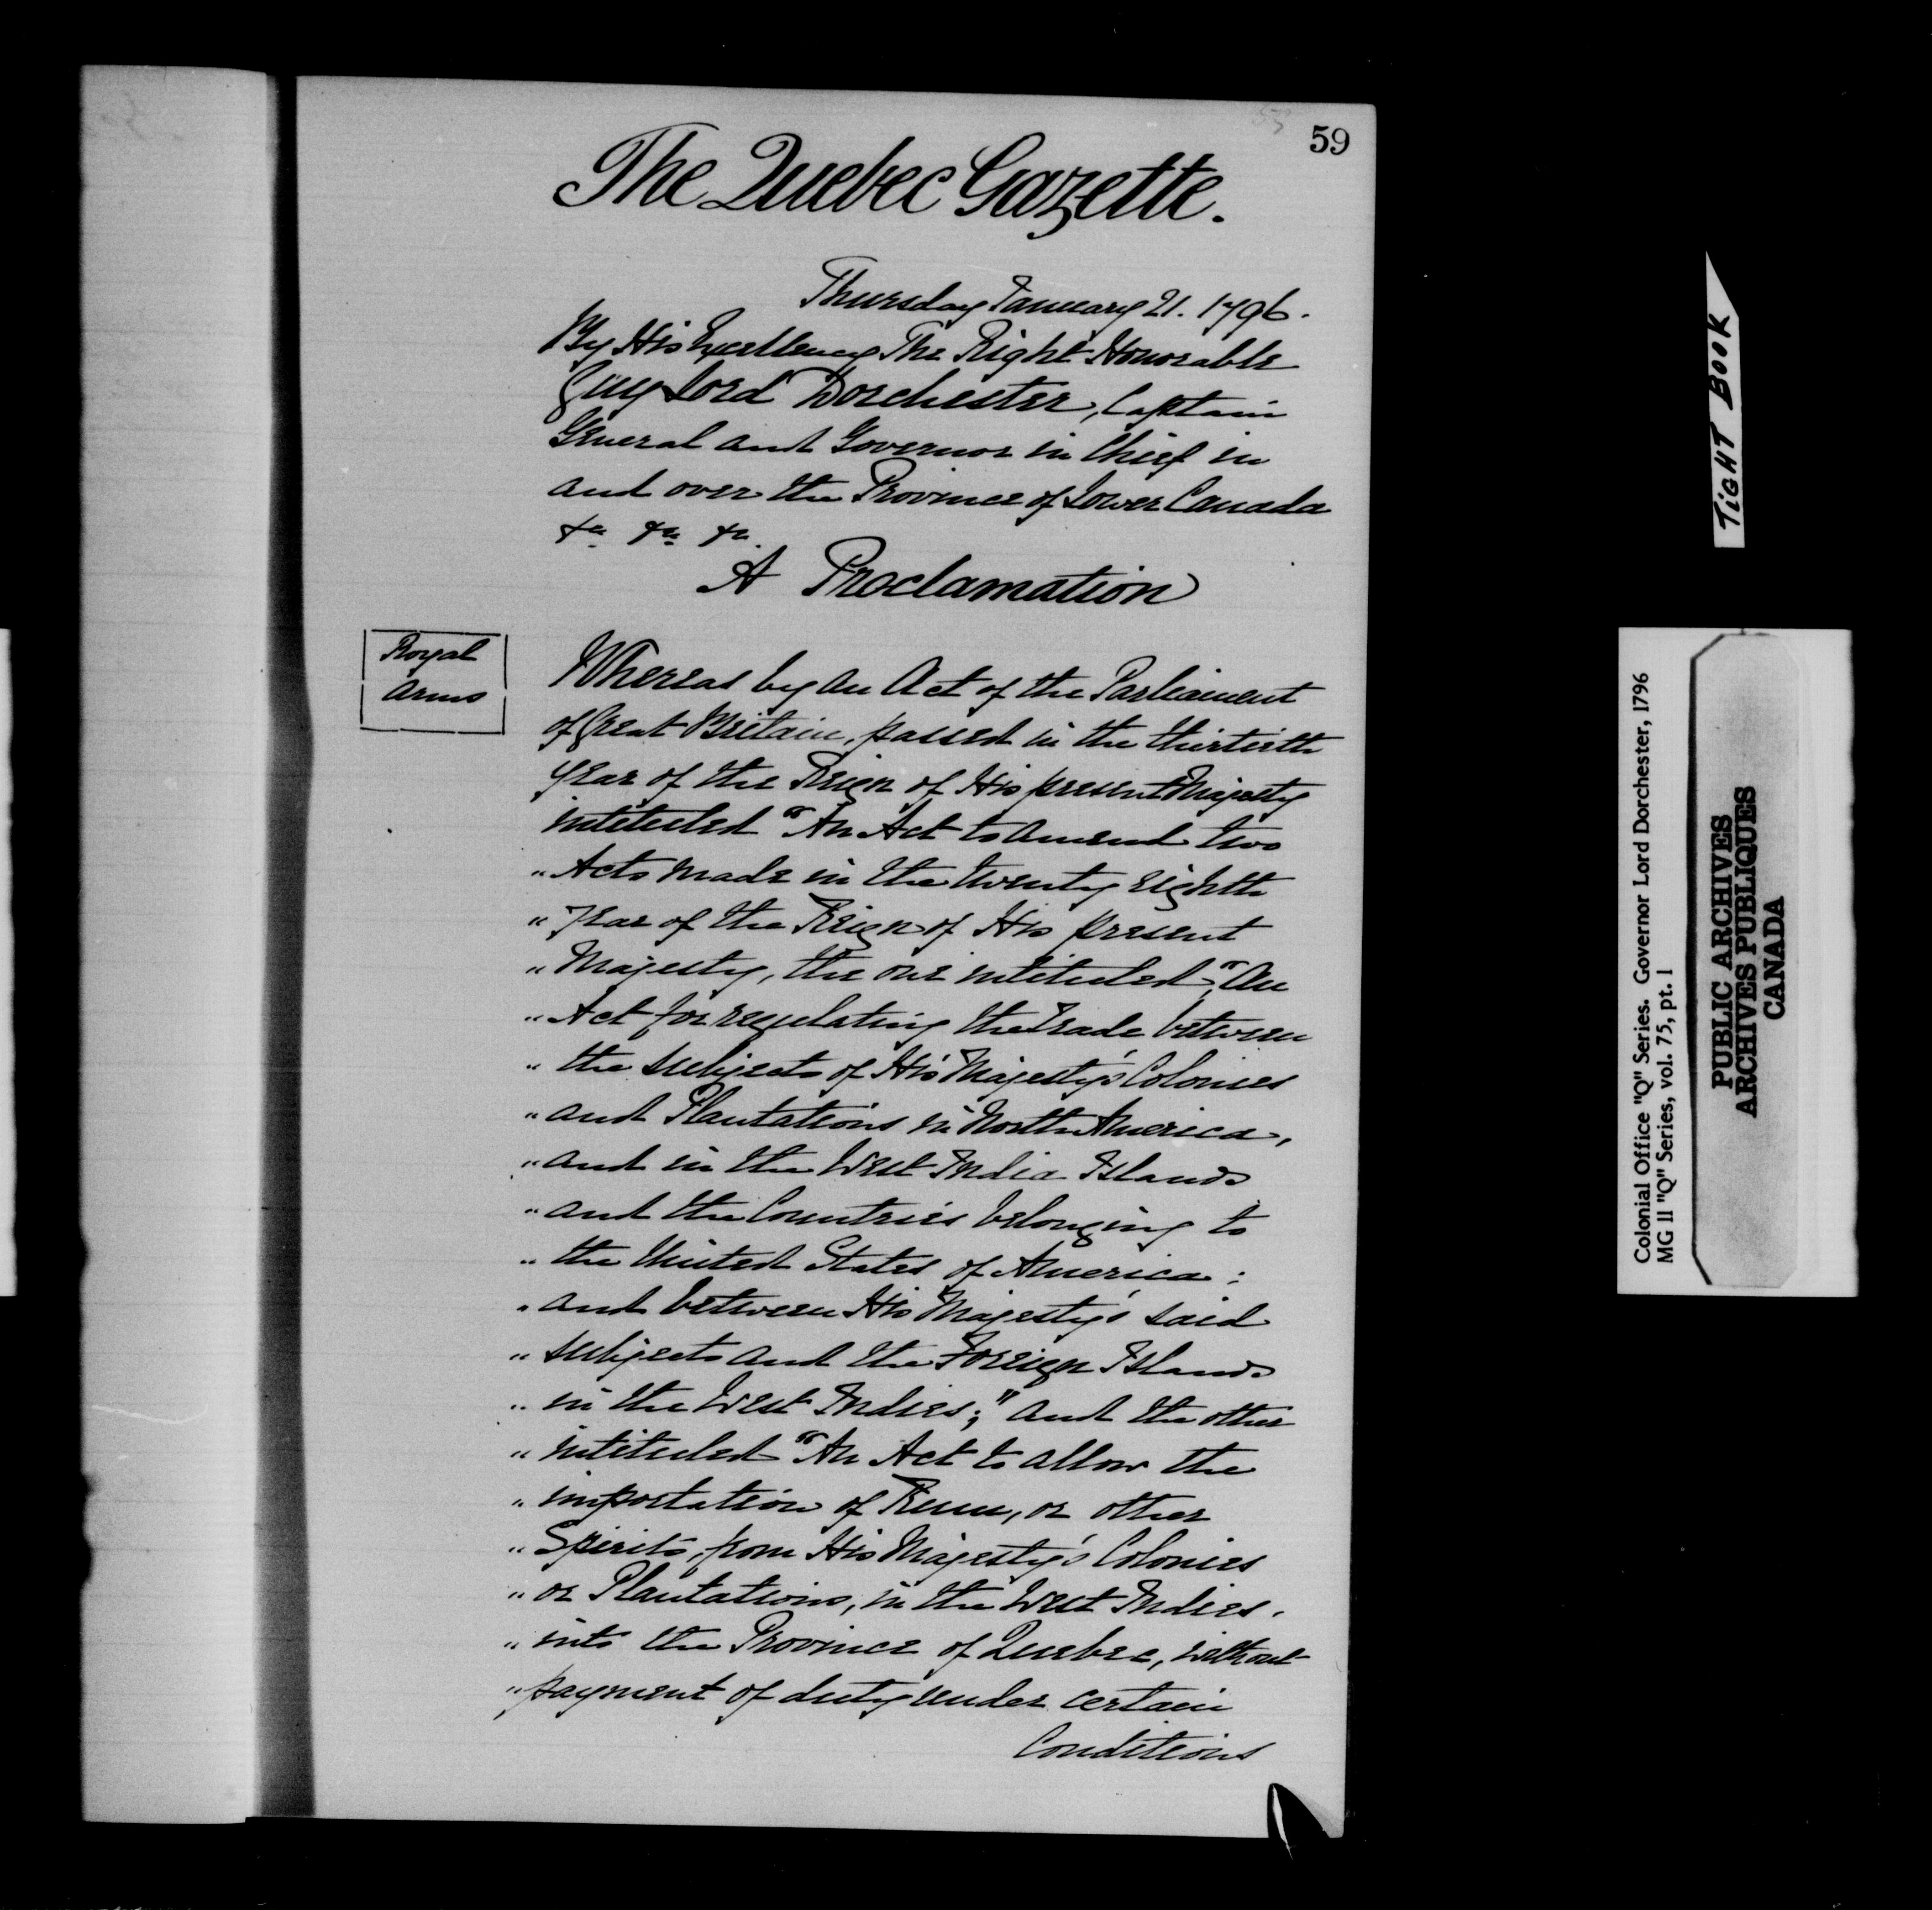 59
The Quebec Gazette.
Thursday January 21. 1796.
By His Excellency The Right Honorable
Guy Lord Dorchester, Captain
General and Governor in Chief in
and over the Province of Lower Canada
&a &a &a.
A Proclamation
Royal
Arms
Whereas by an Act of the Parliament
of Great Britain, passed in the thirtieth
year of the Reign of His present Majesty
intituled "An Act to amend two
" Acts made in the twenty eighth
" Year of the Reign of His present
" Majesty, the one intituled, "An
" Act for regulating the Trade between
" the subjects of His Majesty's Colonies
" and Plantations in North America,
" and in the West India Islands
" and the Countries belonging to
" the United States of America:
" and between His Majesty's said
" subjects and the Foreign Islands
" in the West Indies;" and the other
" intituled "An Act to allow the
" importation of Rum, or other
" Spirits, from His Majesty's Colonies
" or Plantations, in the West Indies.
" into the Province of Quebec, without
" payment of duty under certain
Conditions
TIGHT BOOK
Colonial Office "Q" Series. Governor Lord Dorchester, 1796
MG 11 "Q" Series, vol. 75, pt. 1
PUBLIC ARCHIVES
ARCHIVES PUBLIQUES
CANADA